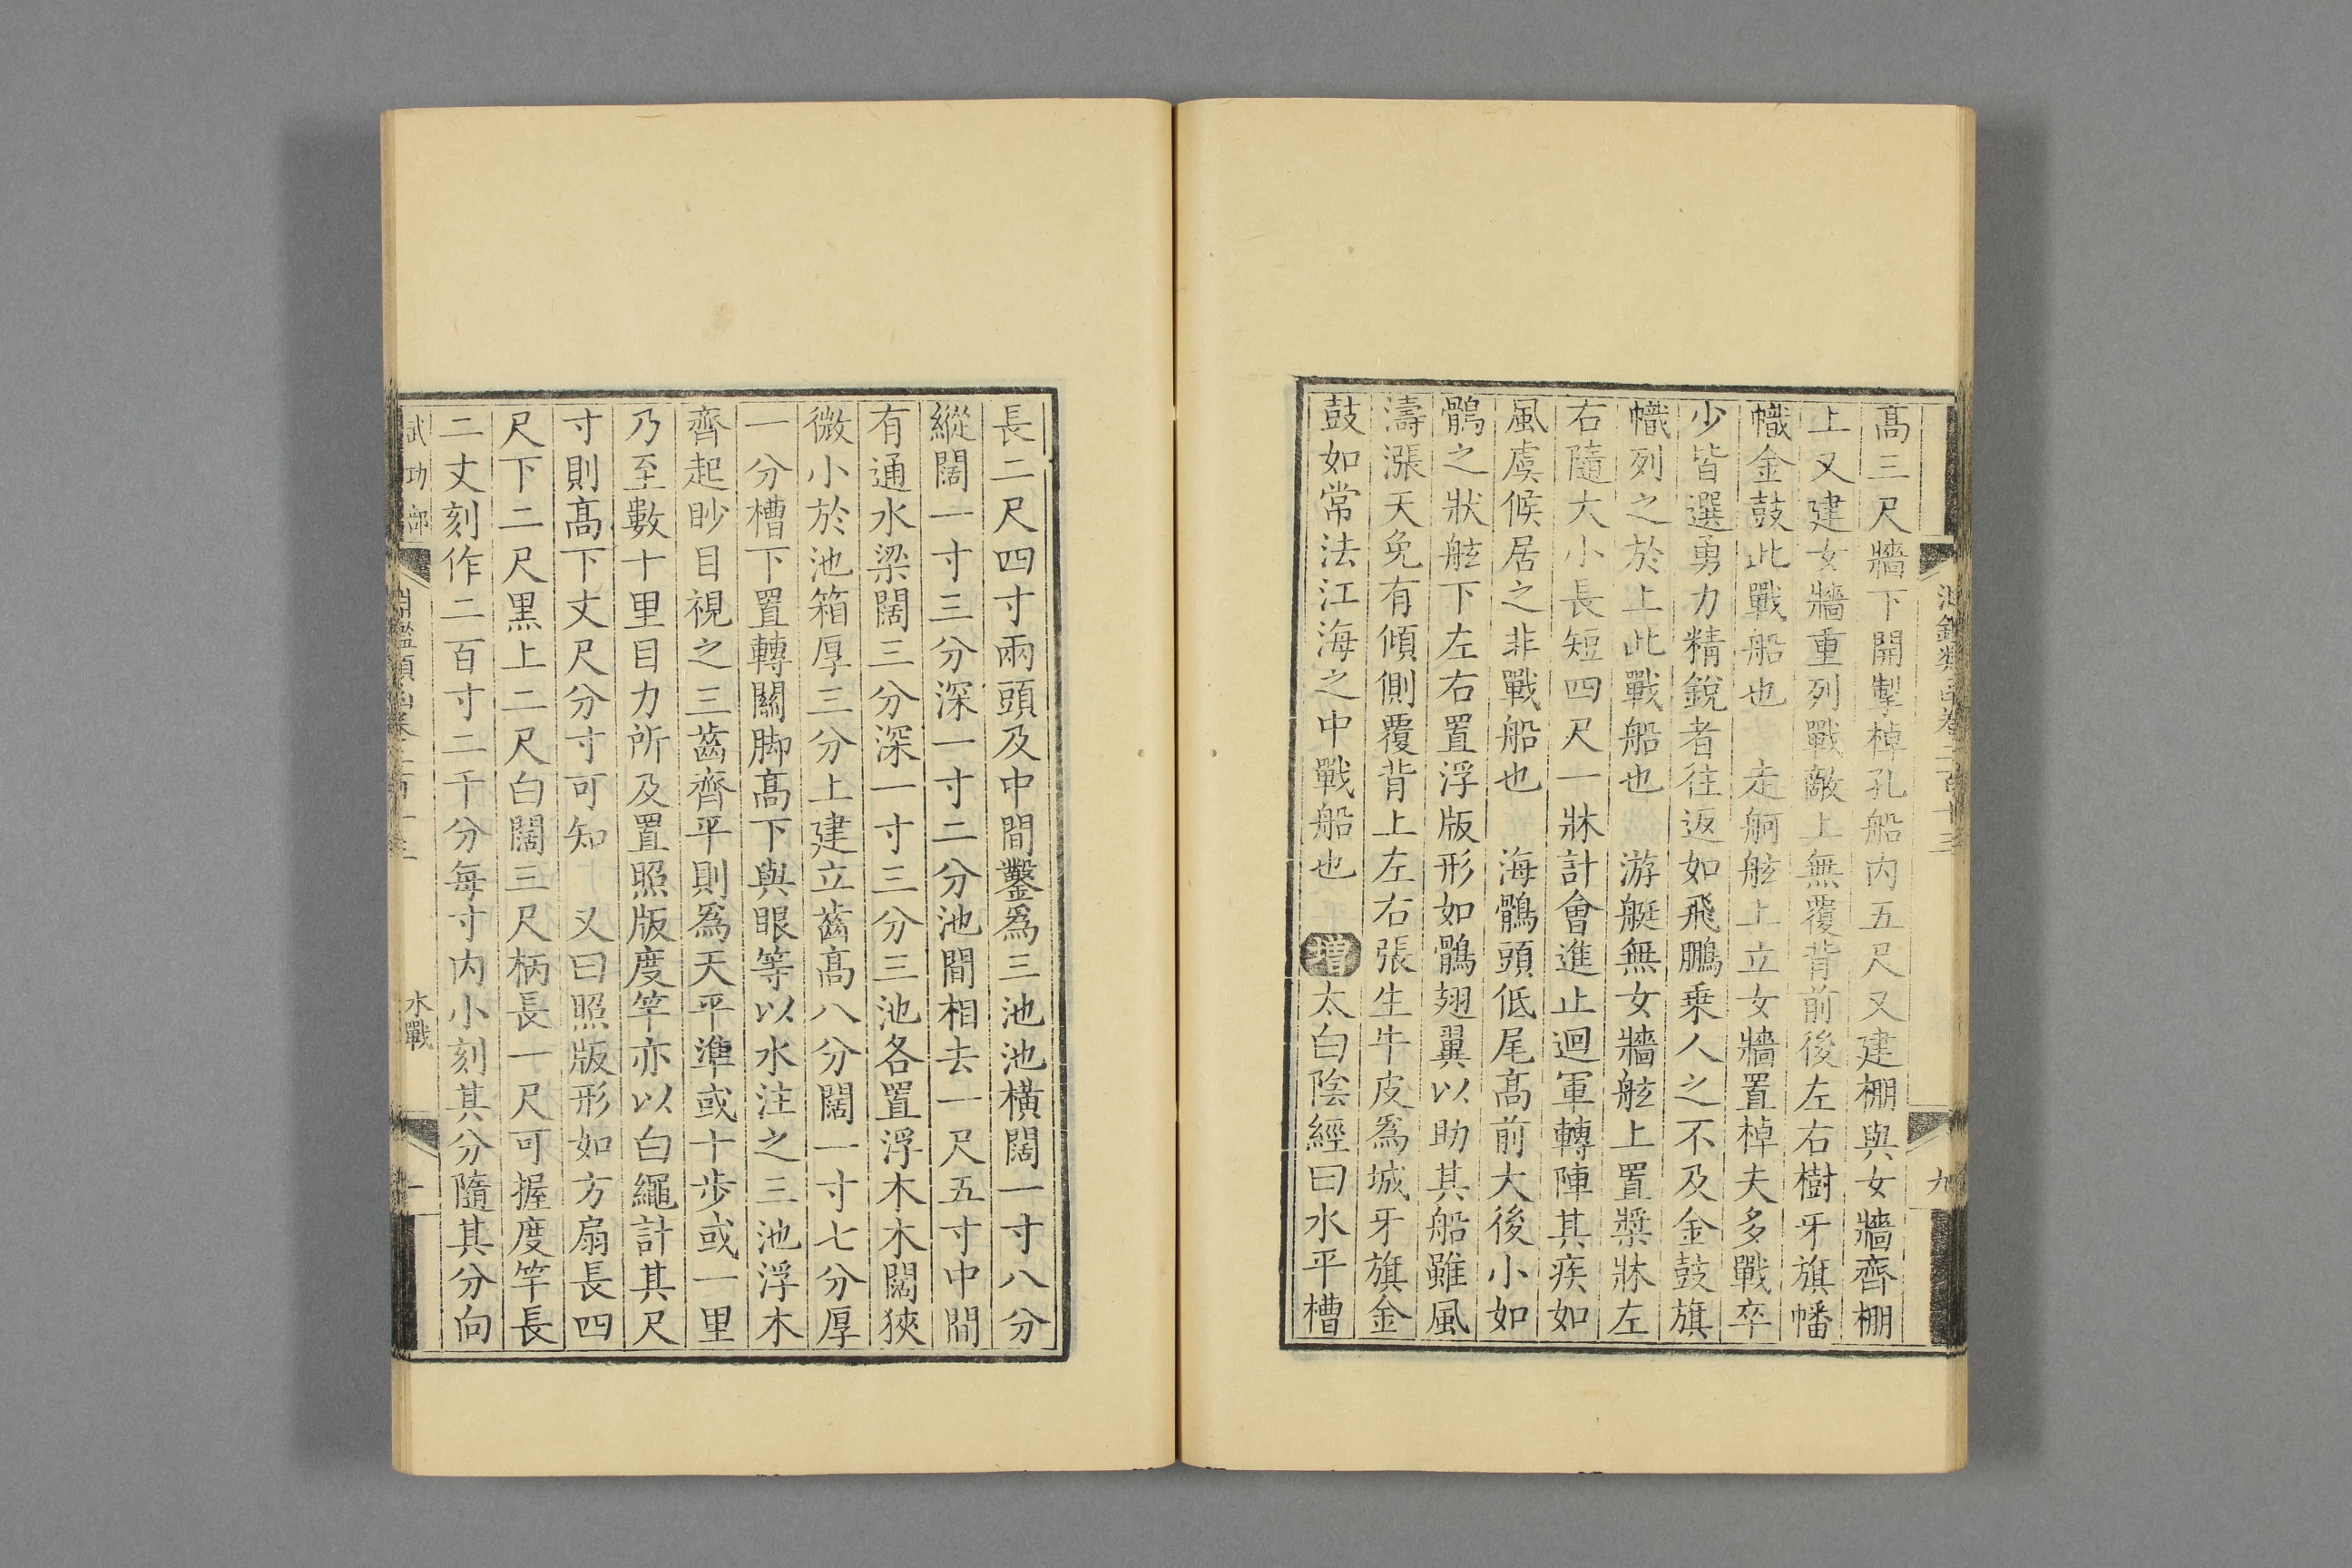 高三尺牆下開掣棹孔船内五尺又建棚與女牆齊棚
上又建女牆重列戰敵上無覆背前後左右樹牙旗幡
幟金鼓此戰船也　走舸舷上立女牆置棹夫多戰卒
少皆選勇力精銳者往返如飛鵬乗人之不及金鼓旗
幟列之於上此戰船也　游艇無女牆舷上置槳牀左
右隨大小長短四尺一牀計會進止迴軍轉陣其疾如
風虞候居之非戰船也　海鶻頭低尾高前大後小如
鶻之狀舷下左右置浮版形如鶻翅翼以助其船雖風
濤漲天免有傾側覆背上左右張生牛皮爲城牙旗金
鼓如常法江海之中戰船也　增太白陰經曰水平槽
九
長二尺四寸兩頭及中間鑿爲三池池橫闊一寸八分
縱闊一寸三分深一寸二分池間相去一尺五寸中間
有通水梁闊三分深一寸三分三池各置浮木木闊狹
微小於池箱厚三分上建立齒高八分闊一寸七分厚
一分槽下置轉關脚高下與眼等以水注之三池浮木
齊起眇目視之三齒齊平則爲天平準或十步或一里
乃至數十里目力所及置照版度竿亦以白繩計其尺
寸則高下丈尺分寸可知　又曰照版形如方扇長四
尺下二尺黒上二尺白闊三尺柄長一尺可握度竿長
二丈刻作二百寸二千分每寸内小刻其分隨其分向
武功部
水戰